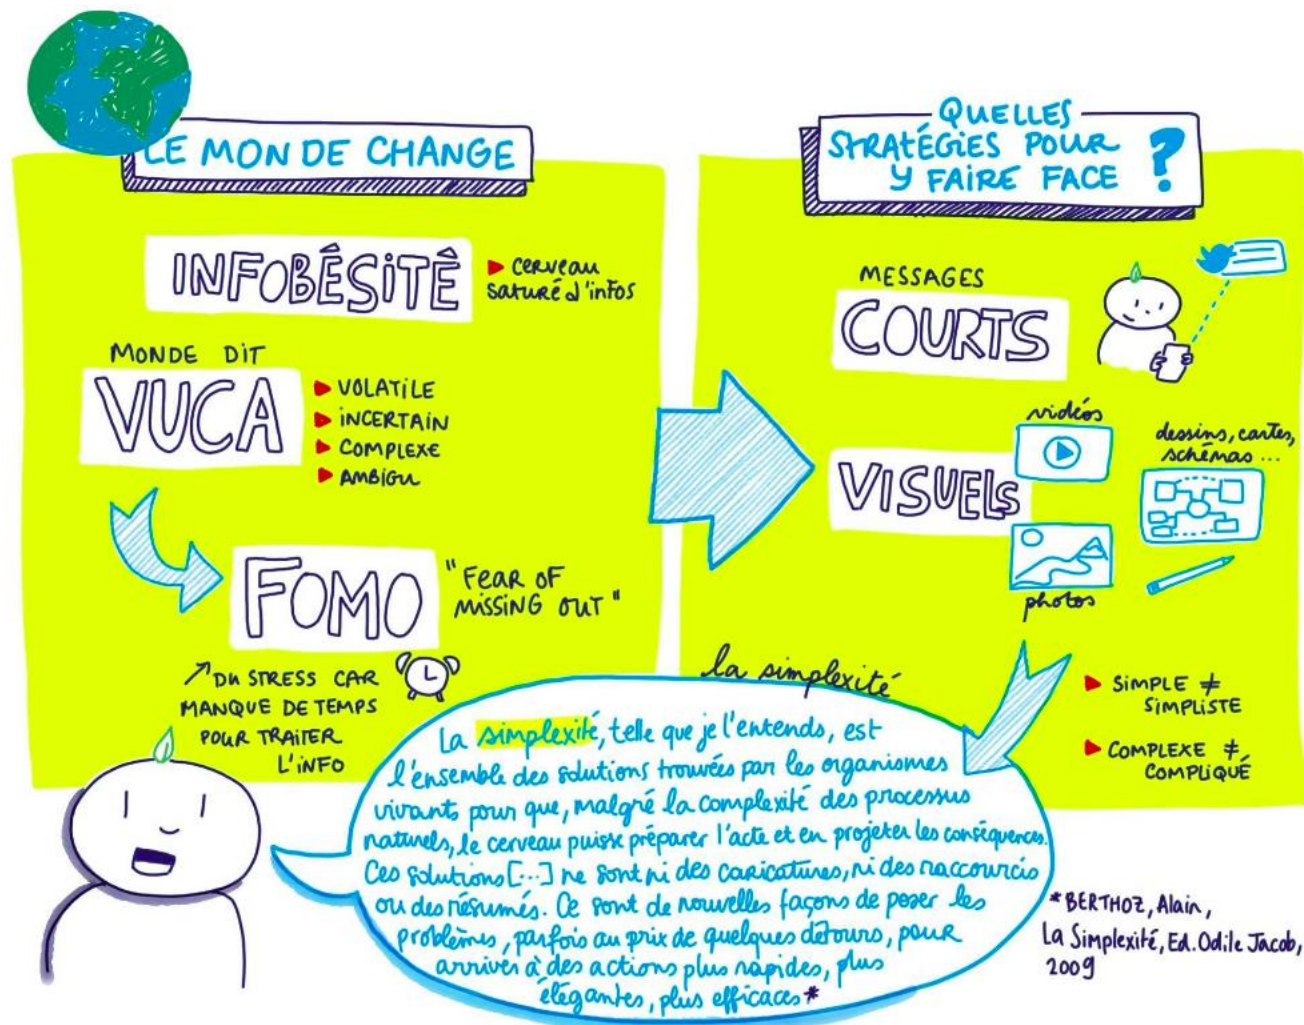 LE MONDE CHANGE
INFOBÊSITÊ
▶ cerveau
saturé d'infos
MONDE DIT
VUCA
▶ VOLATILE
▶ INCERTAIN
▶ COMPLEXE
▶ AMBIGU
FOMO
"FEAR OF
MISSING OUT"
↗ DU STRESS CAR
MANQUE DE TEMPS
POUR TRAITER
L'INFO
QUELLES
STRATÉGIES POUR
Y FAIRE FACE ?
MESSAGES
COURTS
VISUELS
vidéos
dessins, cartes,
schémas ...
photos
la simplexité
▶ SIMPLE ≠
SIMPLISTE
▶ COMPLEXE ≠
COMPLIQUÉ
La simplexité, telle que je l'entends, est
l'ensemble des solutions trouvées par les organismes
vivants pour que, malgré la complexité des processus
naturels, le cerveau puisse préparer l'acte et en projeter les conséquences.
Ces solutions [...] ne sont ni des caricatures, ni des raccourcis
ou des résumés. Ce sont de nouvelles façons de poser les
problèmes, parfois au prix de quelques détours, pour
arriver à des actions plus rapides, plus
élégantes, plus efficaces*
*BERTHOZ, Alain,
La Simplexité, Ed. Odile Jacob,
2009